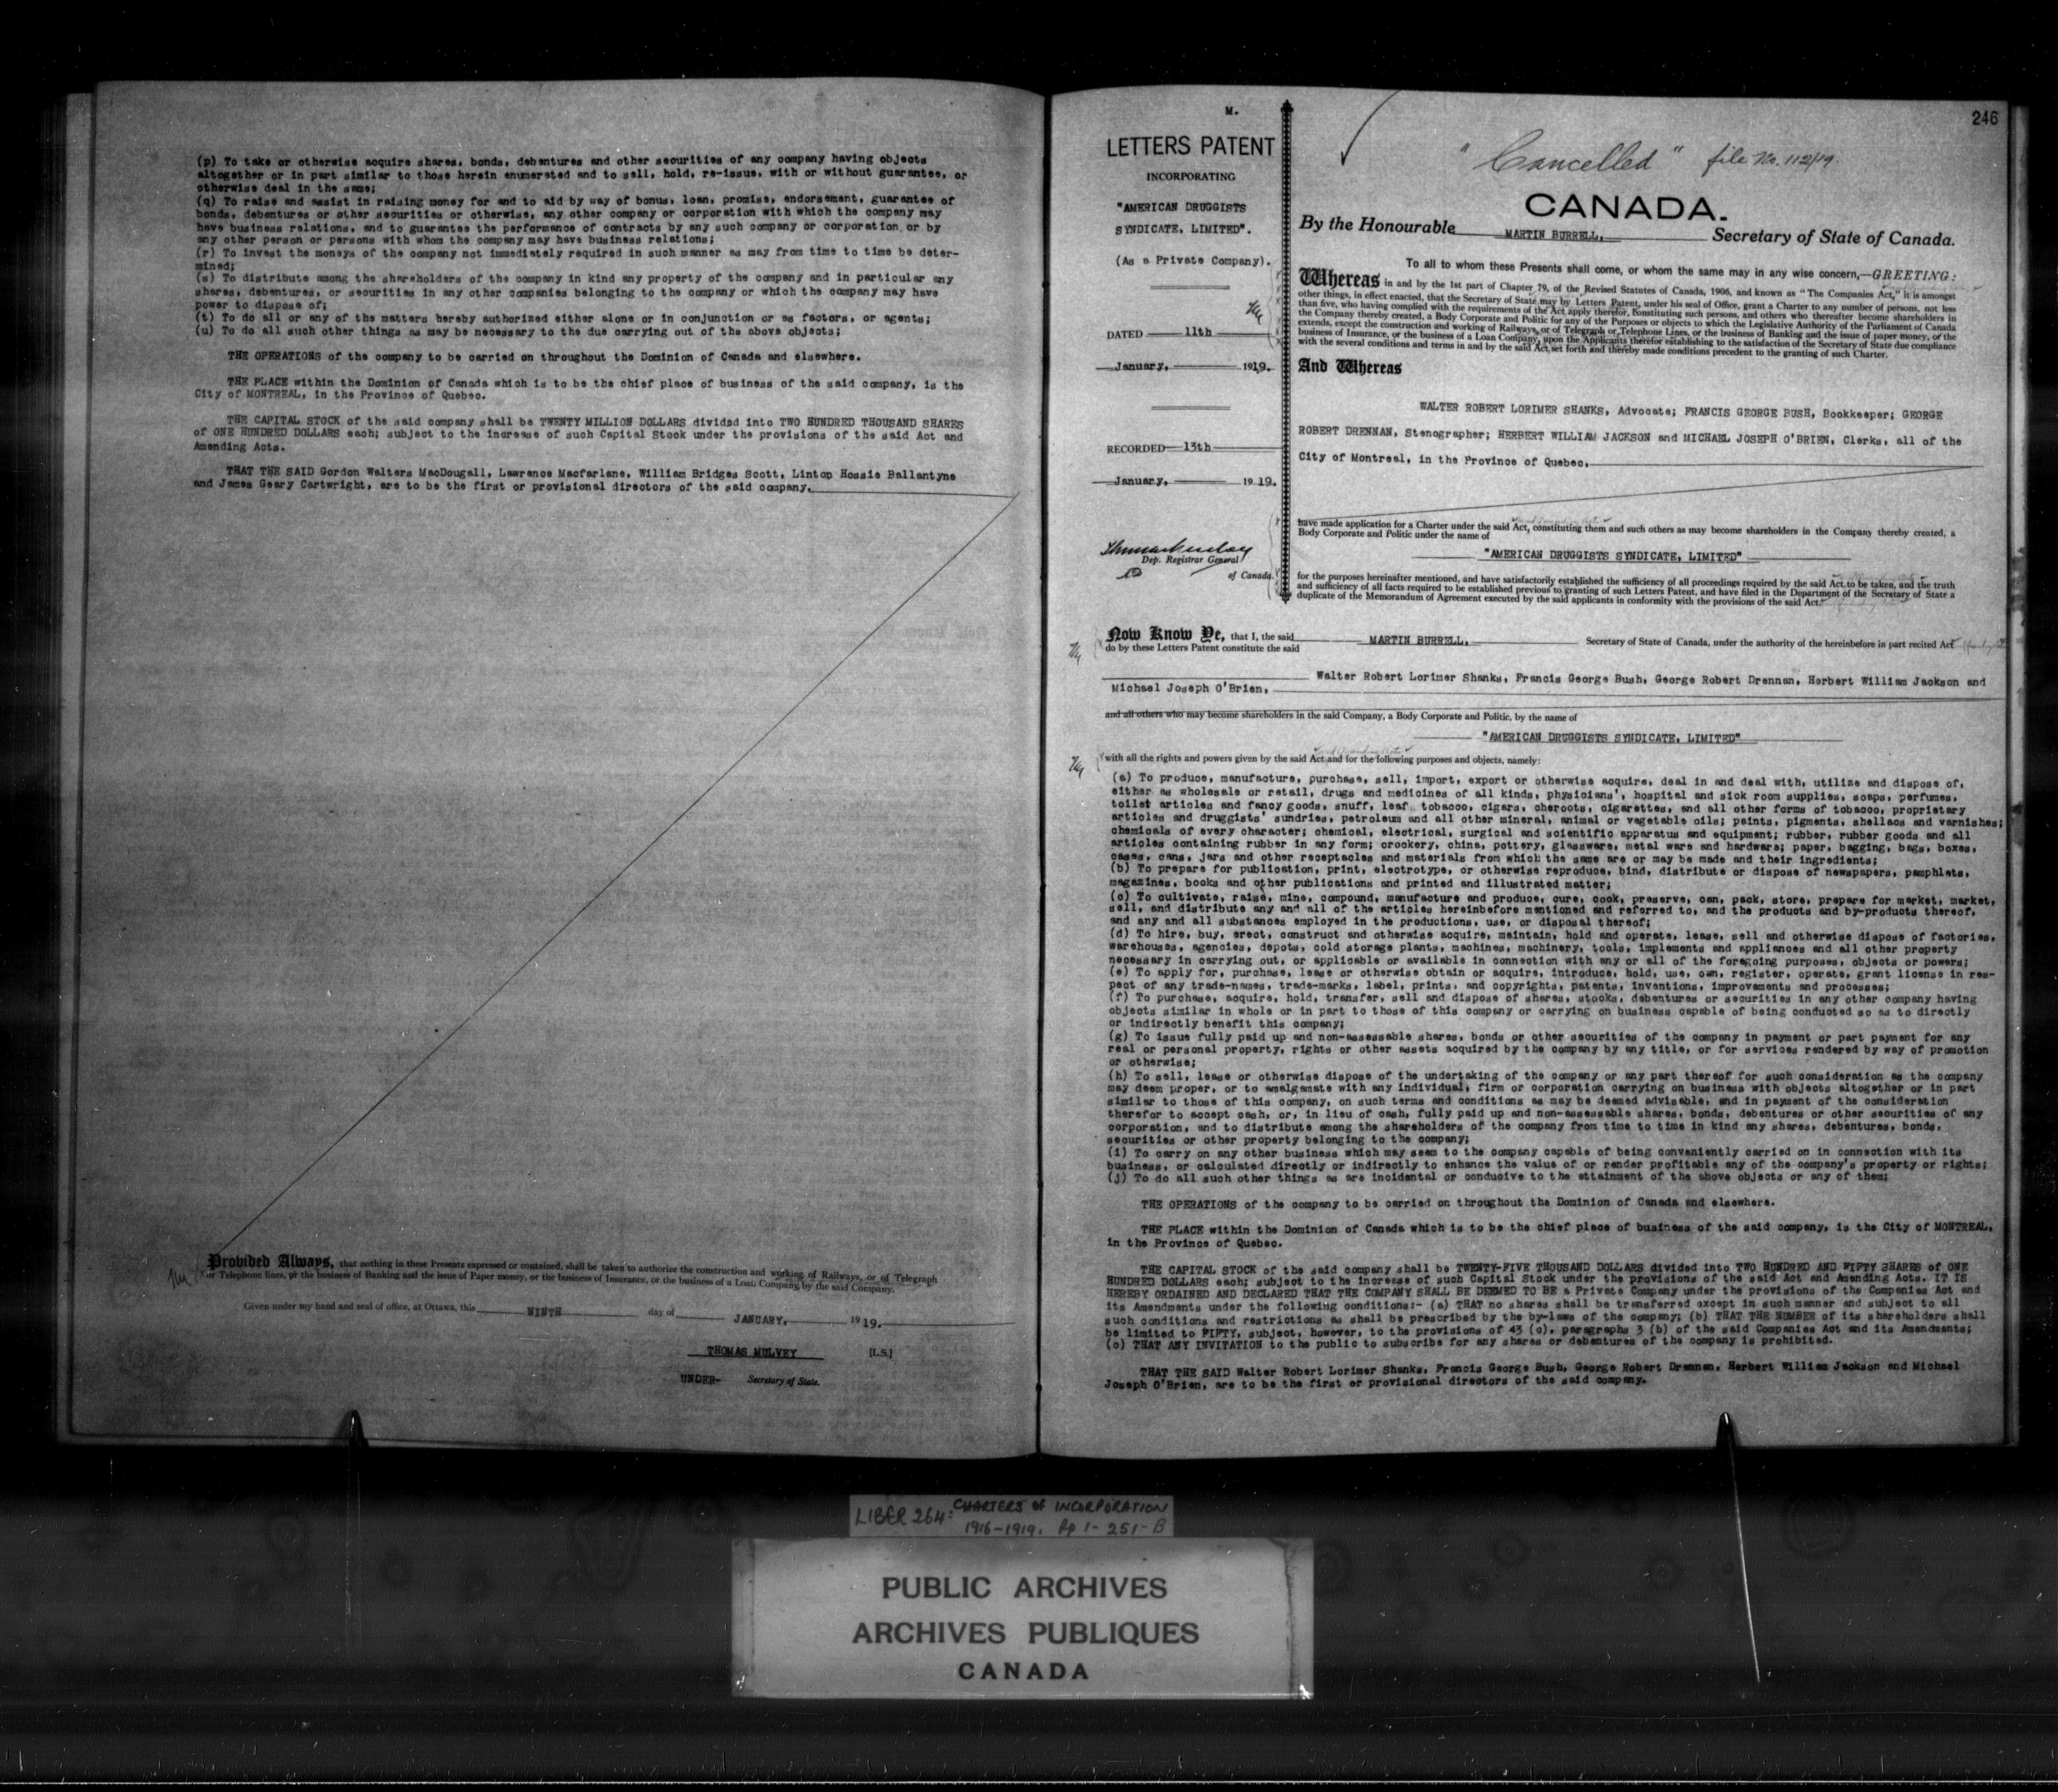 (p) To take or otherwise acquire shares, bonds, debentures and other securities of any company having objects
altogether or in part similar to those herein enumerated and to sell, hold, re-issue, with or without guarantee, or
otherwise deal in the same;
(q) To raise and assist in raising money for and to aid by way of bonus, loan, promise, endorsement, guarantee of
bonds, debentures or other securities or otherwise, any other company or corporation with which the company may
have business relations, and to guarantee the performance of contracts by any such company or corporation or by
any other person or persons with whom the company may have business relations;
(r) To invest the moneys of the company not immediately required in such manner as may from time to time be deter-
mined;
(s) To distribute among the shareholders of the company in kind any property of the company and in particular any
shares, debentures, or securities in any other companies belonging to the company or which the company may have
power to dispose of;
(t) To do all or any of the matters hereby authorized either alone or in conjunction or as factors, or agents;
(u) To do all such other things as may be necessary to the due carrying out of the above objects;
THE OPERATIONS of the company to be carried on throughout the Dominion of Canada and elsewhere.
THE PLACE within the Dominion of Canada which is to be the chief place of business of the said company, is the
City of MONTREAL, in the Province of Quebec.
THE CAPITAL STOCK of the said company shall be TWENTY MILLION DOLLARS divided into TWO HUNDRED THOUSAND SHARES
of ONE HUNDRED DOLLARS each; subject to the increase of such Capital Stock under the provisions of the said Act and
Amending Acts.
THAT THE SAID Gordon Walters MacDougall, Lawrence Macfarlane, William Bridges Scott, Linton Hossie Ballantyne
and James Geary Cartwright, are to be the first or provisional directors of the said company.
Provided Always, that nothing in these Presents expressed or contained, shall be taken to authorize the construction and working of Railways, or of Telegraph
or Telephone lines, or the business of Banking and the issue of Paper money, or the business of Insurance, or the business of a Loan Company by the said Company.
Given under my hand and seal of office, at Ottawa, this NINTH day of JANUARY, 1919.
THOMAS MULVEY [L.S.]
UNDER- Secretary of State.
M.
LETTERS PATENT
INCORPORATING
"AMERICAN DRUGGISTS
SYNDICATE, LIMITED".
(As a Private Company).
DATED 11th
January, 1919.
RECORDED 13th
January, 1919.
Dep. Registrar General
of Canada.
246
"Cancelled" file No. 112/19.
CANADA.
By the Honourable MARTIN BURRELL, Secretary of State of Canada.
To all to whom these Presents shall come, or whom the same may in any wise concern,—GREETING:
Whereas in and by the 1st part of Chapter 79, of the Revised Statutes of Canada, 1906, and known as "The Companies Act," it is amongst
other things, in effect enacted, that the Secretary of State may by Letters Patent, under his seal of Office, grant a Charter to any number of persons, not less
than five, who having complied with the requirements of the Act apply therefor, constituting such persons, and others who thereafter become shareholders in
the Company thereby created, a Body Corporate and Politic for any of the Purposes or objects to which the Legislative Authority of the Parliament of Canada
extends, except the construction and working of Railways, or of Telegraph or Telephone Lines, or the business of Banking and the issue of paper money, or the
business of Insurance, or the business of a Loan Company, upon the Applicants therefor establishing to the satisfaction of the Secretary of State due compliance
with the several conditions and terms in and by the said Act set forth and thereby made conditions precedent to the granting of such Charter.
And Whereas
WALTER ROBERT LORIMER SHANKS, Advocate; FRANCIS GEORGE BUSH, Bookkeeper; GEORGE
ROBERT DRENNAN, Stenographer; HERBERT WILLIAM JACKSON and MICHAEL JOSEPH O'BRIEN, Clerks, all of the
City of Montreal, in the Province of Quebec,
have made application for a Charter under the said Act, constituting them and such others as may become shareholders in the Company thereby created, a
Body Corporate and Politic under the name of
"AMERICAN DRUGGISTS SYNDICATE, LIMITED"
for the purposes hereinafter mentioned, and have satisfactorily established the sufficiency of all proceedings required by the said Act to be taken, and the truth
and sufficiency of all facts required to be established previous to granting of such Letters Patent, and have filed in the Department of the Secretary of State a
duplicate of the Memorandum of Agreement executed by the said applicants in conformity with the provisions of the said Act.
Now Know Ye, that I, the said MARTIN BURRELL, Secretary of State of Canada, under the authority of the hereinbefore in part recited Act
do by these Letters Patent constitute the said
Walter Robert Lorimer Shanks, Francis George Bush, George Robert Drennan, Herbert William Jackson and
Michael Joseph O'Brien,
and all others who may become shareholders in the said Company, a Body Corporate and Politic, by the name of
"AMERICAN DRUGGISTS SYNDICATE, LIMITED"
with all the rights and powers given by the said Act and for the following purposes and objects, namely:
(a) To produce, manufacture, purchase, sell, import, export or otherwise acquire, deal in and deal with, utilize and dispose of,
either as wholesale or retail, drugs and medicines of all kinds, physicians', hospital and sick room supplies, soaps, perfumes,
toilet articles and fancy goods, snuff, leaf tobacco, cigars, cheroots, cigarettes, and all other forms of tobacco, proprietary
articles and druggists' sundries, petroleum and all other mineral, animal or vegetable oils; paints, pigments, shellacs and varnishes;
chemicals of every character; chemical, electrical, surgical and scientific apparatus and equipment; rubber, rubber goods and all
articles containing rubber in any form; crockery, china, pottery, glassware, metal ware and hardware; paper, bagging, bags, boxes,
cases, cans, jars and other receptacles and materials from which the same are or may be made and their ingredients;
(b) To prepare for publication, print, electrotype, or otherwise reproduce, bind, distribute or dispose of newspapers, pamphlets,
magazines, books and other publications and printed and illustrated matter;
(c) To cultivate, raise, mine, compound, manufacture and produce, cure, cook, preserve, can, pack, store, prepare for market, market,
sell, and distribute any and all of the articles hereinbefore mentioned and referred to, and the products and by-products thereof,
and any and all substances employed in the productions, use, or disposal thereof;
(d) To hire, buy, erect, construct and otherwise acquire, maintain, hold and operate, lease, sell and otherwise dispose of factories,
warehouses, agencies, depots, cold storage plants, machines, machinery, tools, implements and appliances and all other property
necessary in carrying out, or applicable or available in connection with any or all of the foregoing purposes, objects or powers;
(e) To apply for, purchase, lease or otherwise obtain or acquire, introduce, hold, use, own, register, operate, grant license in res-
pect of any trade-names, trade-marks, label, prints, and copyrights, patents, inventions, improvements and processes;
(f) To purchase, acquire, hold, transfer, sell and dispose of shares, stocks, debentures or securities in any other company having
objects similar in whole or in part to those of this company or carrying on business capable of being conducted so as to directly
or indirectly benefit this company;
(g) To issue fully paid up and non-assessable shares, bonds or other securities of the company in payment or part payment for any
real or personal property, rights or other assets acquired by the company by any title, or for services rendered by way of promotion
or otherwise;
(h) To sell, lease or otherwise dispose of the undertaking of the company or any part thereof for such consideration as the company
may deem proper, or to amalgamate with any individual, firm or corporation carrying on business with objects altogether or in part
similar to those of this company, on such terms and conditions as may be deemed advisable, and in payment of the consideration
therefor to accept cash, or, in lieu of cash, fully paid up and non-assessable shares, bonds, debentures or other securities of any
corporation, and to distribute among the shareholders of the company from time to time in kind any shares, debentures, bonds,
securities or other property belonging to the company;
(i) To carry on any other business which may seem to the company capable of being conveniently carried on in connection with its
business, or calculated directly or indirectly to enhance the value of or render profitable any of the company's property or rights;
(j) To do all such other things as are incidental or conducive to the attainment of the above objects or any of them;
THE OPERATIONS of the company to be carried on throughout the Dominion of Canada and elsewhere.
THE PLACE within the Dominion of Canada which is to be the chief place of business of the said company, is the City of MONTREAL,
in the Province of Quebec.
THE CAPITAL STOCK of the said company shall be TWENTY-FIVE THOUSAND DOLLARS divided into TWO HUNDRED AND FIFTY SHARES of ONE
HUNDRED DOLLARS each; subject to the increase of such Capital Stock under the provisions of the said Act and Amending Acts. IT IS
HEREBY ORDAINED AND DECLARED THAT THE COMPANY SHALL BE DEEMED TO BE a Private Company under the provisions of the Companies Act and
its Amendments under the following conditions:- (a) THAT no shares shall be transferred except in such manner and subject to all
such conditions and restrictions as shall be prescribed by the by-laws of the company; (b) THAT THE NUMBER of its shareholders shall
be limited to FIFTY, subject, however, to the provisions of 43 (c), paragraphs 3 (b) of the said Companies Act and its Amendments;
(c) THAT ANY INVITATION to the public to subscribe for any shares or debentures of the company is prohibited.
THAT THE SAID Walter Robert Lorimer Shanks, Francis George Bush, George Robert Drennan, Herbert William Jackson and Michael
Joseph O'Brien, are to be the first or provisional directors of the said company.
LIBER 264: CHARTERS of INCORPORATION
1916-1919. Pp 1-251-B
PUBLIC ARCHIVES
ARCHIVES PUBLIQUES
CANADA